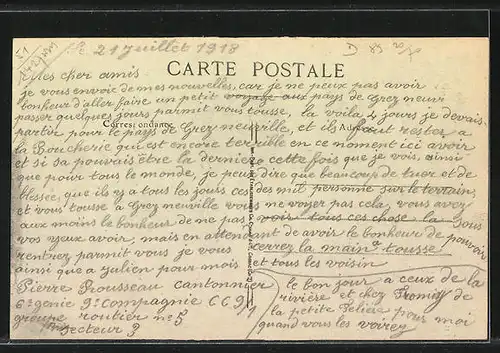 Le 21 Juillet 1918
CARTE POSTALE
Mes cher amis
je vous envoie de mes nouvelles, car je ne peux pas avoir
bonheur d'aller faire un petit voyage aux pays de Grez neuri
passer quelques jours parmit vous tousse, la voila 4 jours je devais
Correspondance
partir pour le pays de Grez neuville, et ils faut restez a
la Boucherie qui est encore terrible en ce moment ici avoir
et si sa pouvais être la dernière cette fois que je vois, ainsi
que pour tous le monde, je peux dire que beaucoup de tuer et de
blessée, que ils y a tous les jours ces des mit personne sur le terrain,
et vous tousse à Grez neuville vous ne voyer pas cela, vous aver
aux moins le bonheur de ne pas voir tous ces chose la sous
vos yeux avoir, mais en attendant de avoir le bonheur de pouvoir
rentrez parmit vous je vous serrez la main a tousse
ainsi que a Julien pour mois et tous les voisin
Pierre Rousseau Cantonnier
le bon jour a ceux de la
6e genie 9e Compagnie C 69/1
rivière et chez Fromy
groupe routier no 5
la petite Pelière pour moi
Secteur 3
quand vous les voirez